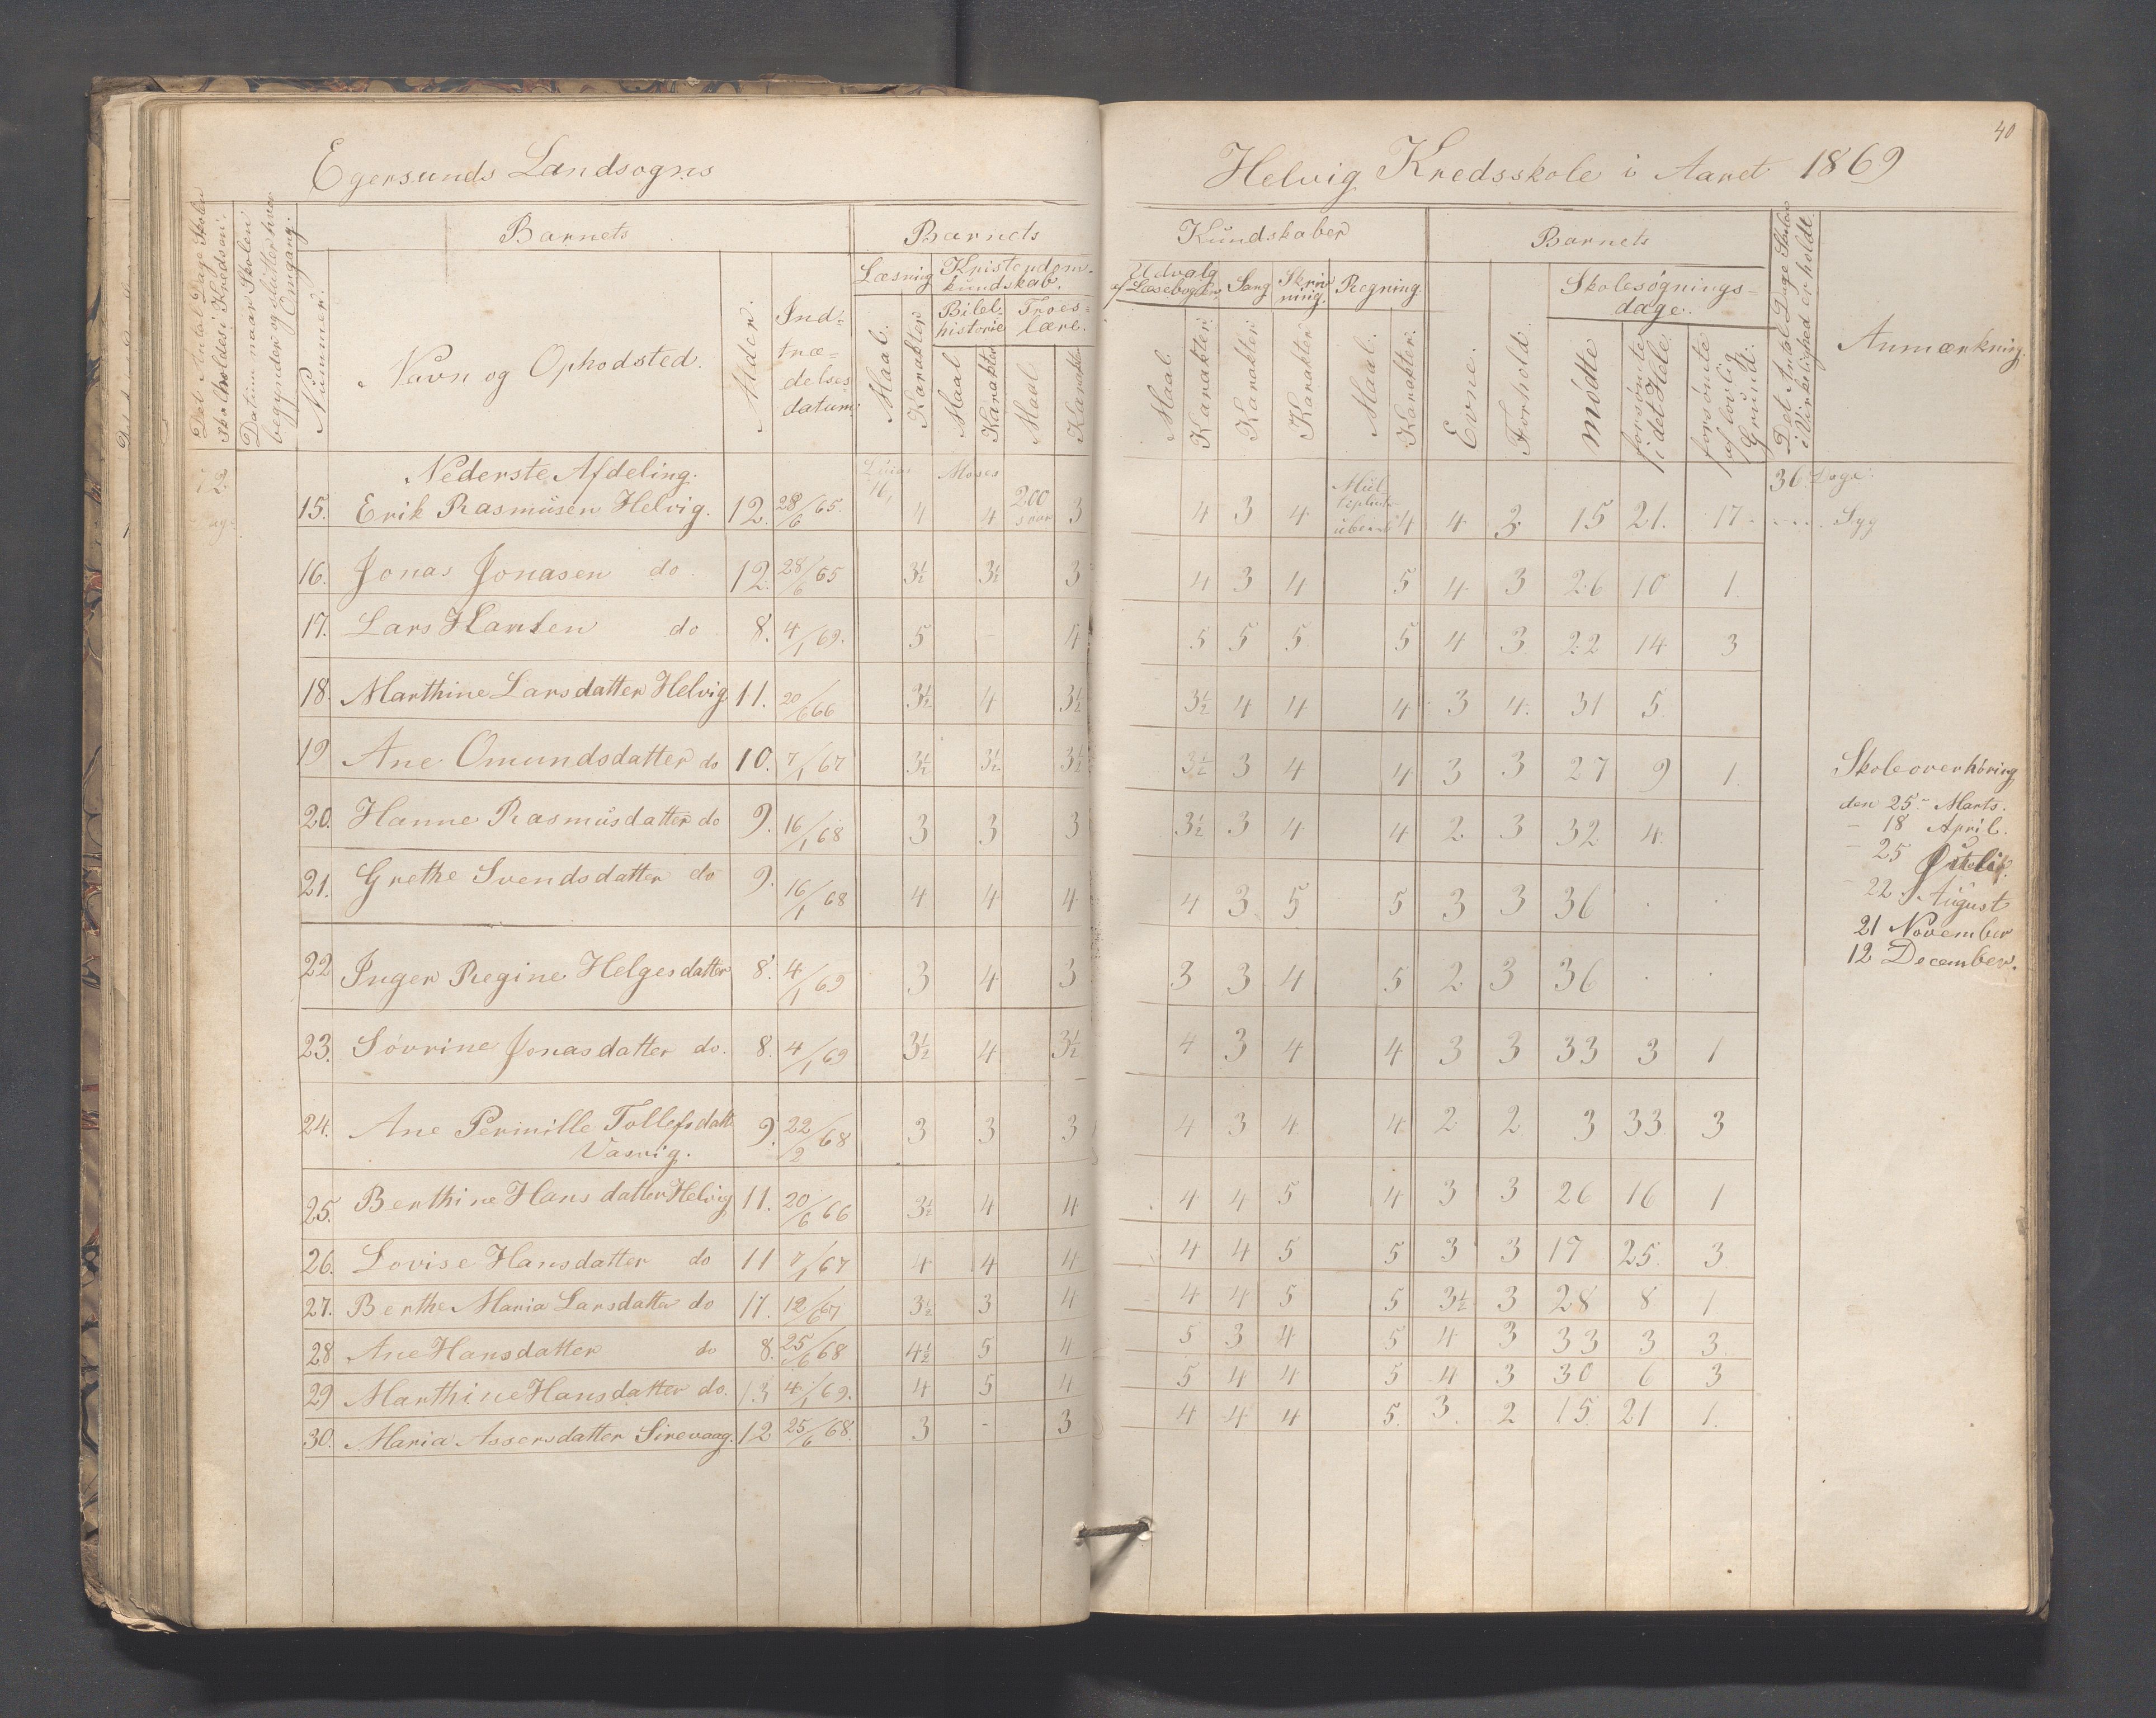 40
Egersunds Landsogns
Helvig Kredsskole i Aaret 1869
Det Antal Dage Skolen skal holdes i Kredsen.
Datum naar Skolen begynder og slutter hver Omgang.
Barnets
Nummer.
Navn og Opholdsted.
Alder.
Ind-
træ-
delses
datum.
Barnets
Læsning
Maal.
Karakter
Kristendom-
kundskab.
Bibel-
historie
Maal
Karakter
Troes-
lære.
Maal
Karakter
Kundskaber
Udvalg
af Læsebogen
Maal
Karakter.
Sang
Karakter
Skriv
ning.
Karakter
Regning
Maal.
Karakter.
Barnets
Evne.
Forhold.
Skolesøgnings-
dage.
mødte
forsømte
i det Hele.
forsømte
af lovlig
Grund.
Det Antal Dage Skolen
i Virkelighed er holdt.
Anmærkning.
Nederste Afdeling. Moses 36 Dage.
15. Erik Rasmusen Helvig. 12. 28/6 65. 4 4 200 svar 3 4 3 4 Mul- 4 4 3 15 21. 17. Syg
16. Jonas Jonasen do. 12. 28/6 65 3½ 3½ 3 4 3 4 5 4 3 26 10 1.
17. Lars Hansen do 8. 4/1 69. 5 - 4 5 5 5. 5 4 3 22 14 3
18. Marthine Larsdatter Helvig 11. 20/6 66 3½ 4 3½ 3½ 4 4 4 3 4. 31 5.
19 Ane Omundsdatter do 10. 7/1 67 3½ 3½ 3½ 3½ 3 4 4 3 3 27 9 1.
20. Hanne Rasmusdatter do 9. 16/1 68 3 3 3 3½ 3 4 4 2 3 32 4.
21. Grethe Svendsdatter do 9. 16/1 68 4 4 4 4 3 5 5 3 3 36 . .
22 Inger Regine Helgesdatter 8. 4/1 69 3 4 3 3 3 4 5 2 3 36 . .
23. Sövrine Jonasdatter do. 8. 4/1 69 3½ 4 3½ 4 3 4 4 3 3 33 3 1
24. Ane Pernille Tollefsdatt 9. 22/2 68 3 3 3 4 3 4 4 2 2 3 33 3
Vasvig.
25. Berthine Hansdatter Helvig 11. 20/6 66 3½ 4 4 4 4 5 4 3 3 26 16 1
26. Lovise Hansdatter do 11 7/1 67 4 4 4 4 4 5 5 3 3 17 25. 3
27. Berthe Maria Larsdatter do 11. 12/6 67 3½ 3 4 4 4 5 5 3½ 3 28 8 1
28 Ane Hansdatter do 8. 25/6 68 4½ 5 4 5 3 4 5 4 3 33 3 3
29 Marthine Hansdatter do. 13 4/1 69. 4 5 4 5 4 4 5 4 3 30 6 3
30. Maria Assersdatter Sirevaag. 12 25/6 68. 3 - 3 4 4 4 5. 3. 2 15 21 1.
Skoleoverhöring
den 25 - Marts.
- 18 April.
- 25
- 22 August
21 November
12 December.